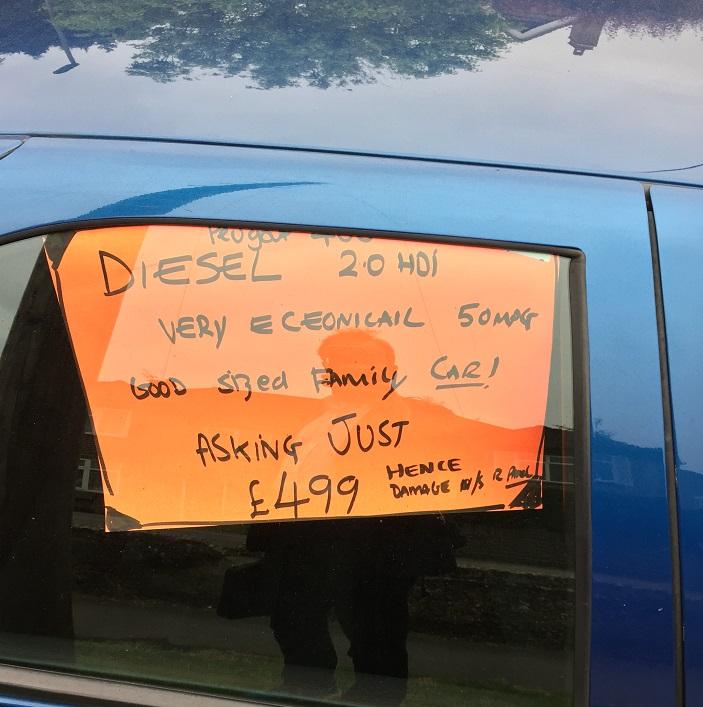 DIESEL 2.0 HDI
VERY ECEONICAIL 50MPG
GOOD SiZed FAMiLy CAR!
ASKiNG JUST
£499
HENCE
DAMAGE N/S R